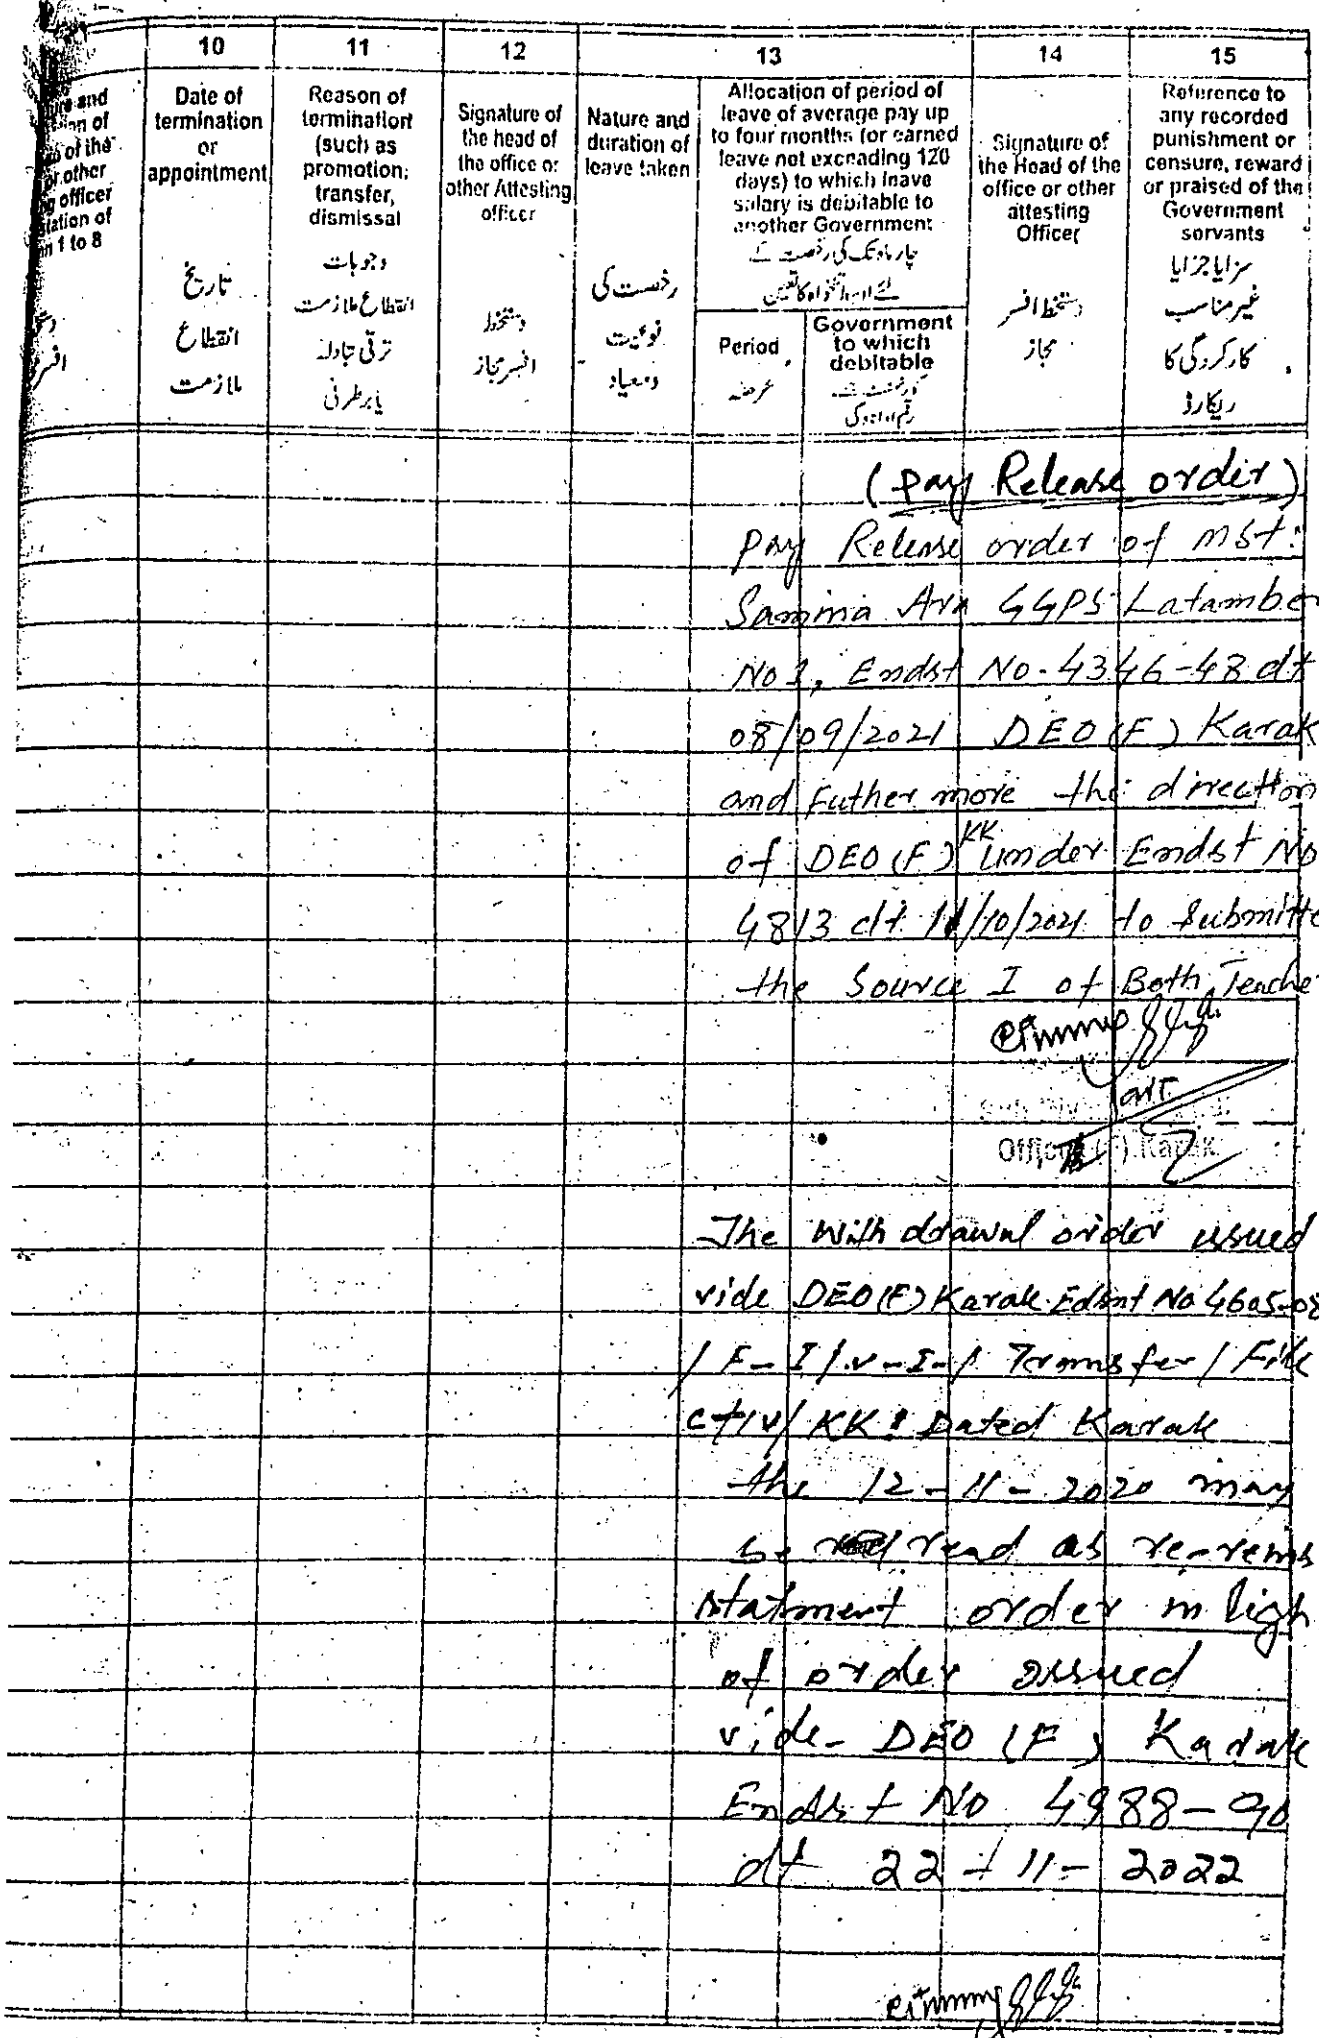 10 11 12 13 14 15
and
of the
or other
officer
1 to 8
Date of
termination
or
appointment
تاریخ
انقطاع
ملازمت
Reason of
termination
(such as
promotion,
transfer,
dismissal
وجوہات
انقطاع ملازمت
ترقی تبادلہ
یا برطرفی
Signature of
the head of
the office or
other Attesting
officer
دستخط
افسر مجاز
Nature and
duration of
leave taken
رخصت کی
نوعیت
ومعیاد
Allocation of period of
leave of average pay up
to four months (or earned
leave not exceeding 120
days) to which leave
salary is debitable to
another Government
چار ماہ تک کی رخصت کے
Period
عرصہ
Government
to which
debitable
Signature of
the Head of the
office or other
attesting
Officer
دستخط افسر
مجاز
Reference to
any recorded
punishment or
censure, reward
or praised of the
Government
servants
سزا یا جزا یا
غیر مناسب
کارکردگی کا
ریکارڈ
(Pay Release order)
Pay Release order of Mst:
Samina Ara GGPS Latamber
No 1, Endst No. 4346-48 dt
08/09/2021 DEO (F) Karak
and Futher more the direction
of DEO (F) KK under Endst No
4813 dt 11/10/2021 to submitte
the Source I of Both Teache
Office (F) Karak
The With drawal order issued
vide DEO (F) Karak Edsnt No 4605-08
/ F-I / v-I-/ Transfer / File
CT IV/ KK: Dated Karak
the 12-11-2020 may
be read as re-reins
statment order in ligh
of order issued
vide DEO (F) Karak
Endst No 4988-90
dt 22-11-2022